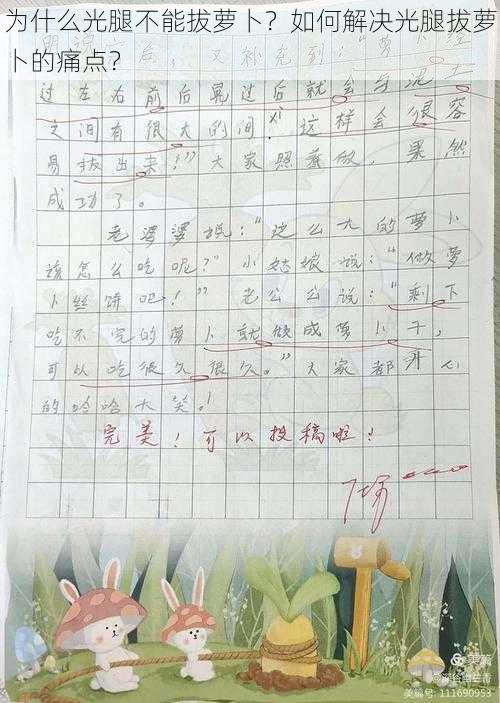 为什么光腿不能拔萝卜？如何解决光腿拔萝
卜的痛点？
后，又补充到：“萝卜经
过左右前后晃过后就会与泥土
之间有很大的间 xì，这样会很容
易拔出来！”大家照着做，果然
成功了。
老婆婆说：“这么大的萝卜
该怎么吃呢？”小姑娘说：“做萝
卜丝饼吧！”老公公说：“剩下
吃不完的萝卜就做成萝卜干，
可以吃很久很久。”大家都开心
的哈哈大笑。
完美！可以投稿啦！
美篇
美篇号：111690953